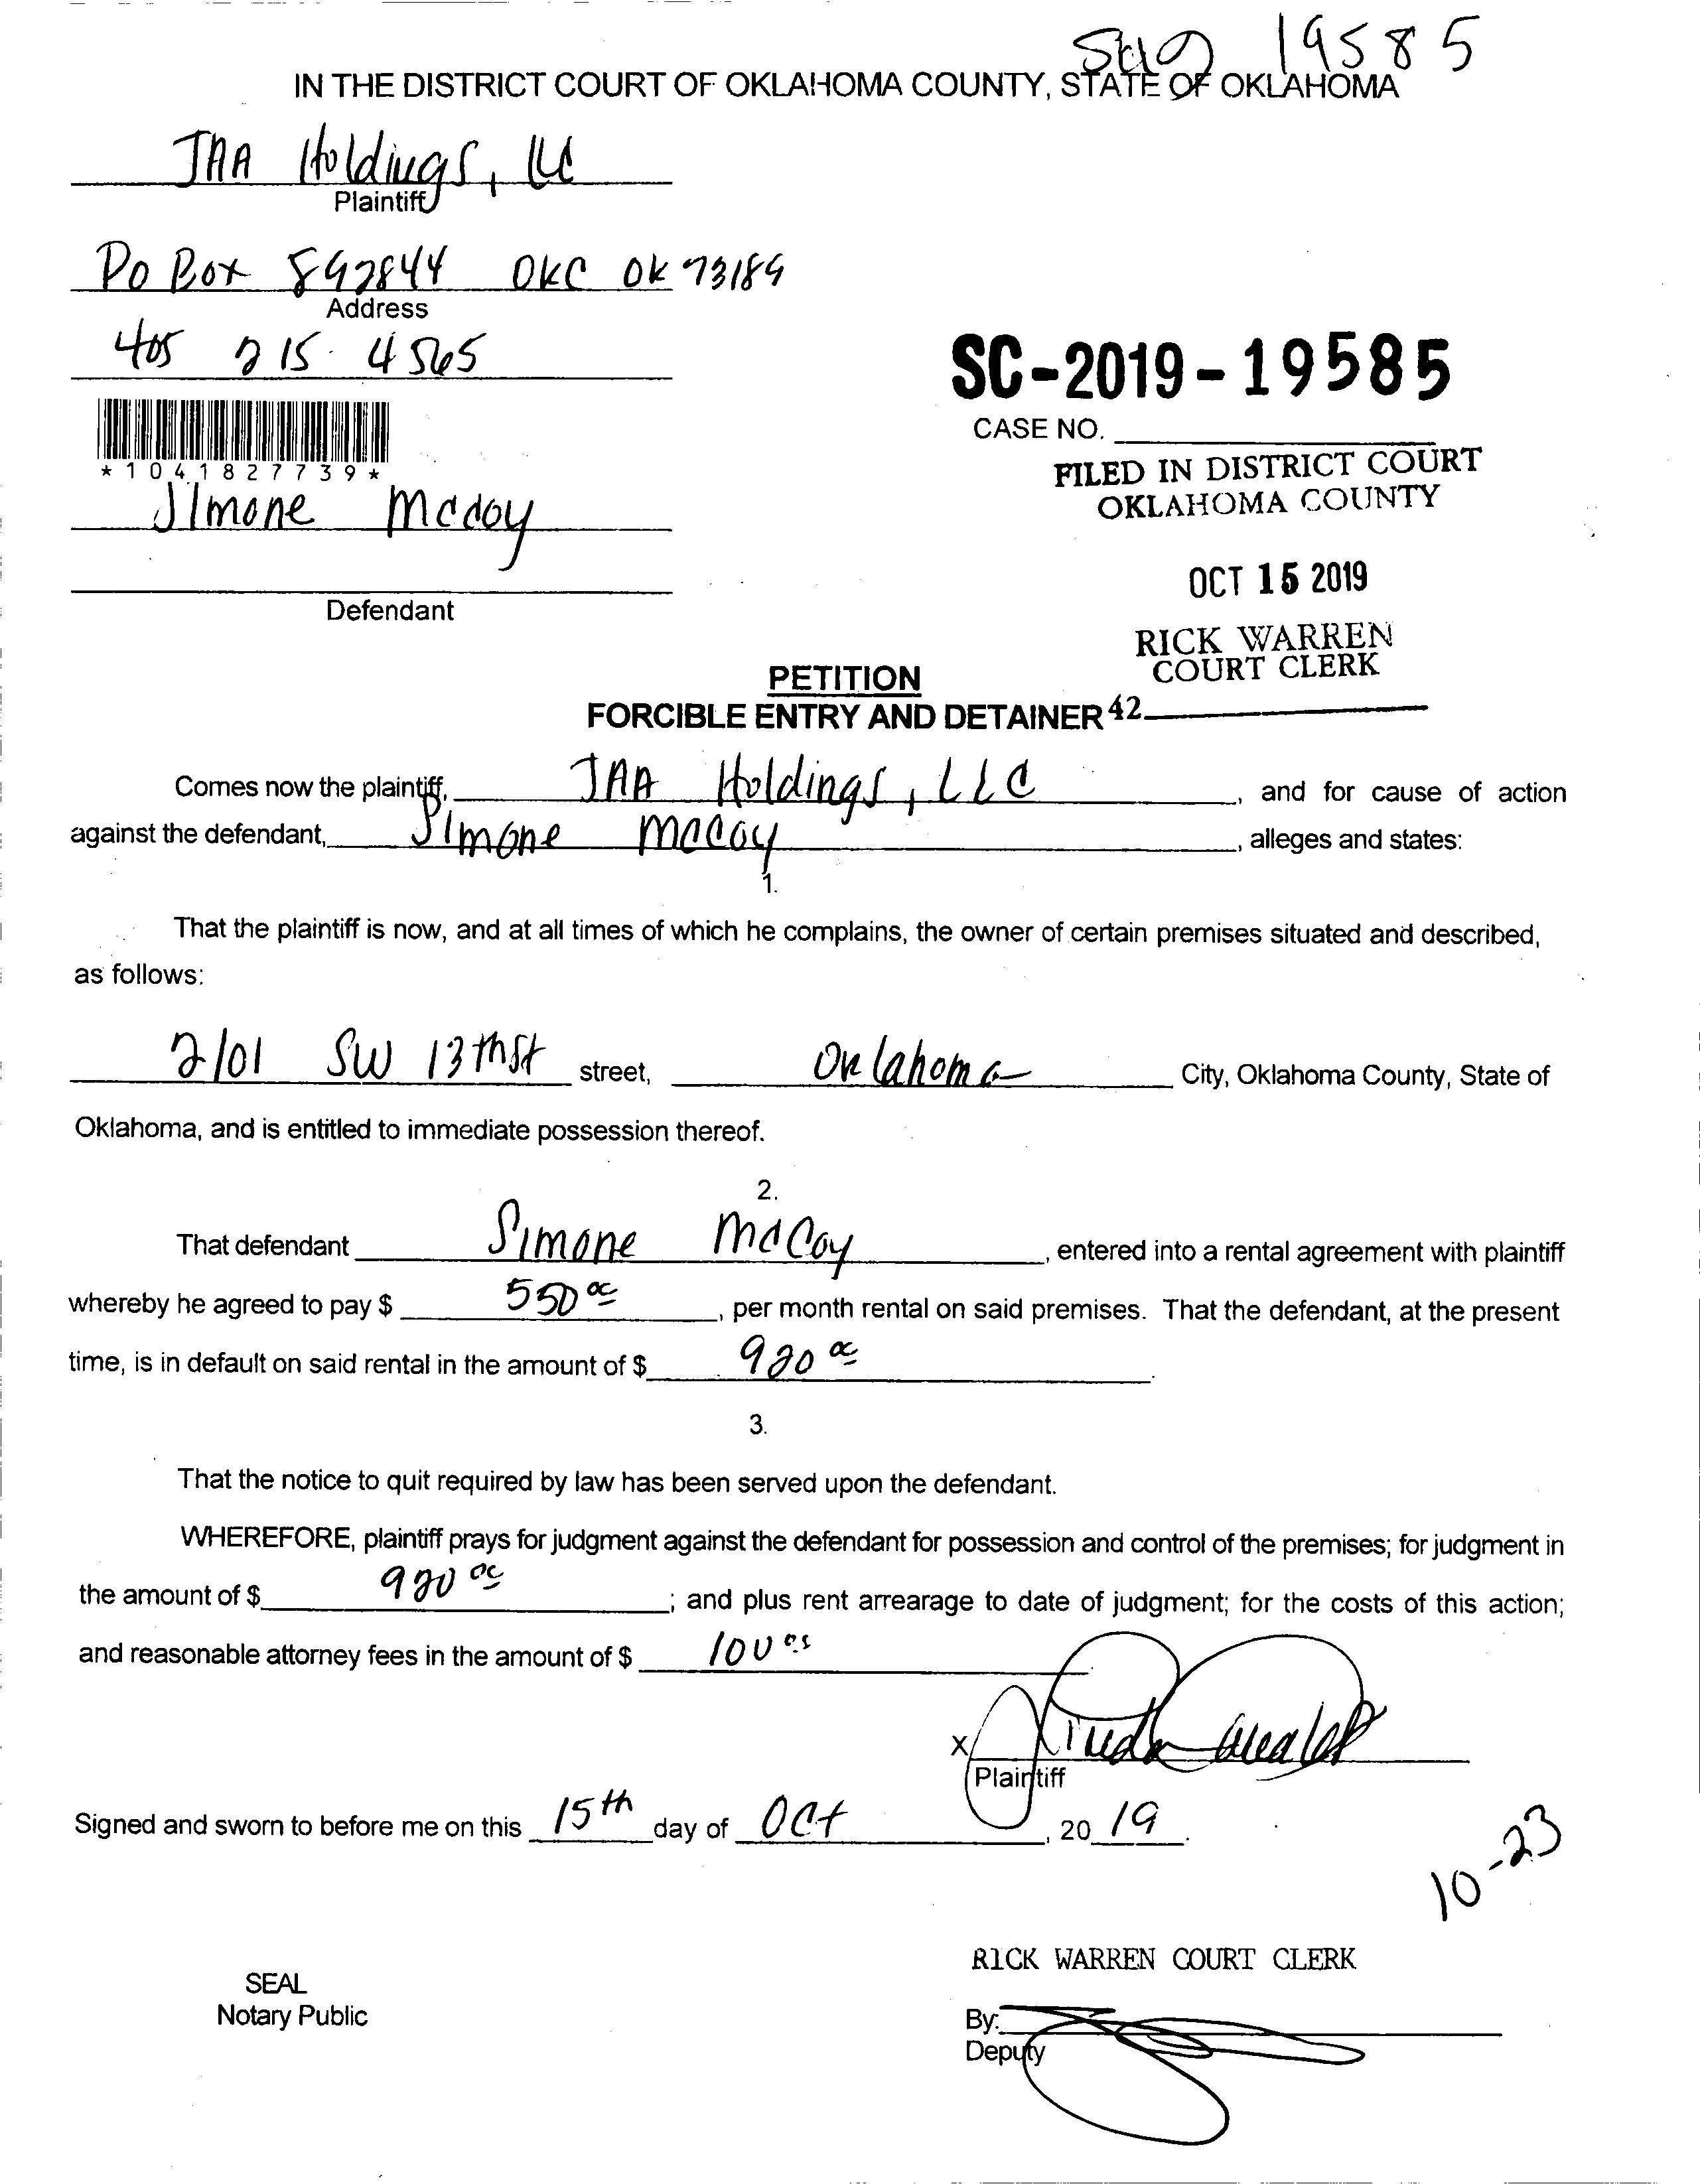 19585
IN THE DISTRICT COURT OF OKLAHOMA COUNTY, STATE OF OKLAHOMA
JAA Holdings, LLC
Plaintiff
PO Box 892844 OKC OK 73189
Address
405 215 4565
SC-2019-19585
CASE NO.
*1041827739*
FILED IN DISTRICT COURT
OKLAHOMA COUNTY
Simone McCoy
OCT 15 2019
Defendant
RICK WARREN
COURT CLERK
PETITION
FORCIBLE ENTRY AND DETAINER 42
Comes now the plaintiff, JAA Holdings, LLC, and for cause of action
against the defendant, Simone McCoy, alleges and states:
1.
That the plaintiff is now, and at all times of which he complains, the owner of certain premises situated and described,
as follows:
2101 SW 13th St street, Oklahoma City, Oklahoma County, State of
Oklahoma, and is entitled to immediate possession thereof.
2.
That defendant Simone McCoy, entered into a rental agreement with plaintiff
whereby he agreed to pay $ 550 00, per month rental on said premises. That the defendant, at the present
time, is in default on said rental in the amount of $ 920 00.
3.
That the notice to quit required by law has been served upon the defendant.
WHEREFORE, plaintiff prays for judgment against the defendant for possession and control of the premises; for judgment in
the amount of $ 920 00; and plus rent arrearage to date of judgment; for the costs of this action;
and reasonable attorney fees in the amount of $ 100 00
X
Plaintiff
Signed and sworn to before me on this 15th day of Oct, 20 19.
10-23
RICK WARREN COURT CLERK
SEAL
Notary Public
By:
Deputy